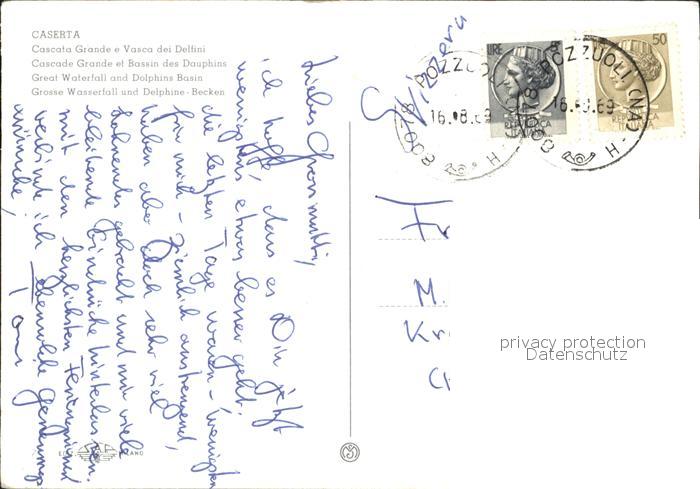 CASERTA
Cascata Grande e Vasca dei Delfini
Cascade Grande et Bassin des Dauphins
Great Waterfall and Dolphins Basin
Grosse Wasserfall und Delphine - Becken
Liebes Grossmutti,
ich hoffe, dass es Dir jetzt
wenigstens etwas besser geht.
die letzten Tage waren - wenigstens
für mich - ziemlich anstrengend,
haben aber doch sehr viel
lohnendes gebracht und mir viele
bleibende Eindrücke hinterlassen.
mit den herzlichsten Feriengrüssen
verbinde ich ebensolche Genesungs-
wünsche!
Svizzera
LIRE
POZZUOLI (NA)
16.08.69
REPUBBLICA
ITALIANA
50
POZZUOLI (NA)
16.08.69
REPUBBLICA
ITALIANA
Fr
M.
Kr
privacy protection
Datenschutz
MILANO